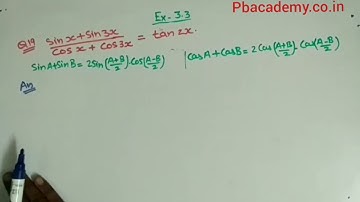 Pbacademy.co.in
Ex-3.3
Q19 sinx+sin3x / cosx+cos3x = tan2x.
SinA+SinB = 2Sin(A+B/2)·Cos(A-B/2) | CosA+CosB = 2Cos(A+B/2)·Cos(A-B/2)
Ans